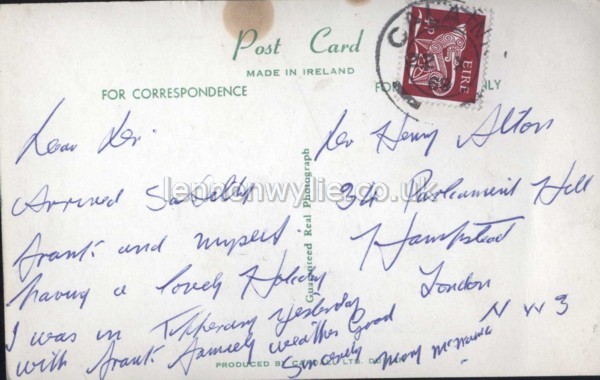 Post Card
MADE IN IRELAND
FOR CORRESPONDENCE
FO NLY
EIRE
Dear Les.
Arrived Safelly
Frank and myself
having a lovely Holiday
I was in Tipperary yesterday
with Frank family weather Good
Sincerely Mary
Guaranteed Real Photograph
Henry Alton
34 Parliament Hill
Hampstead
London
N W 3
lennonwylie.co.uk
PRODUCED BY LTD.